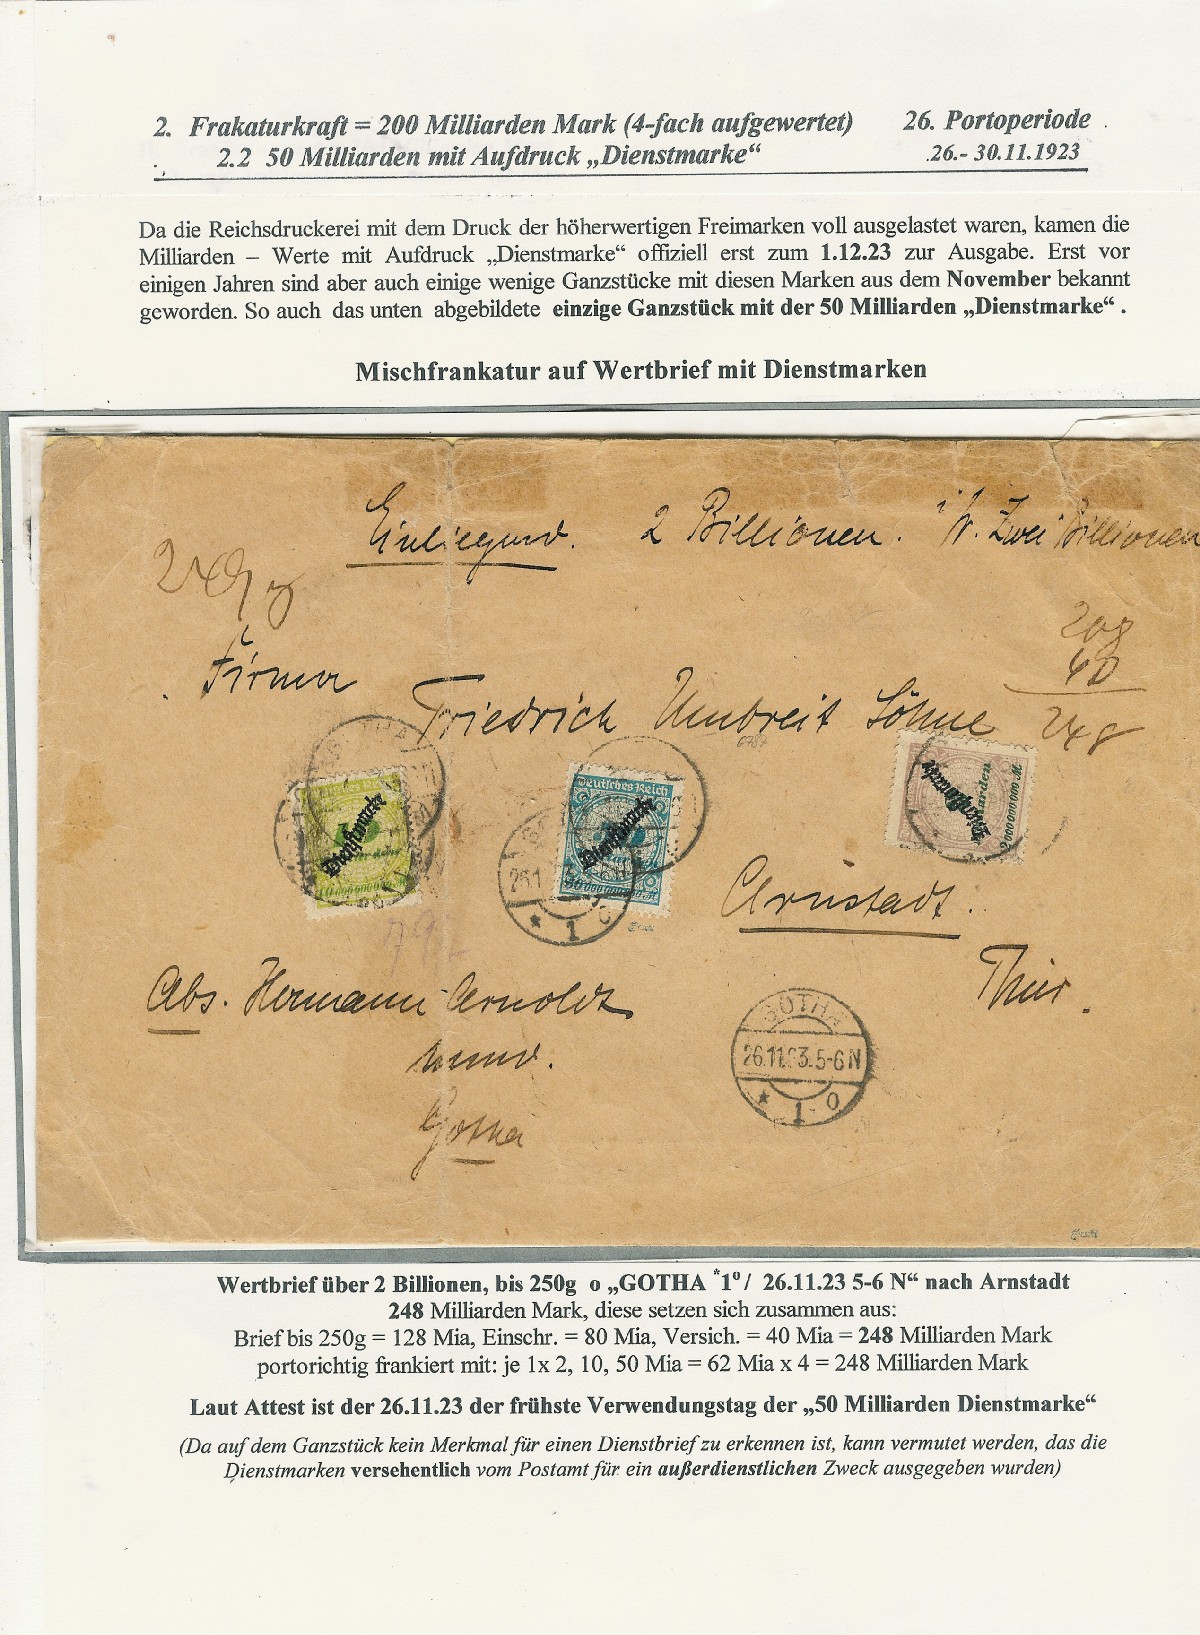 2. Frakaturkraft = 200 Milliarden Mark (4-fach aufgewertet) 26. Portoperiode
2.2 50 Milliarden mit Aufdruck „Dienstmarke“ 26.- 30.11.1923
Da die Reichsdruckerei mit dem Druck der höherwertigen Freimarken voll ausgelastet waren, kamen die
Milliarden – Werte mit Aufdruck „Dienstmarke“ offiziell erst zum 1.12.23 zur Ausgabe. Erst vor
einigen Jahren sind aber auch einige wenige Ganzstücke mit diesen Marken aus dem November bekannt
geworden. So auch das unten abgebildete einzige Ganzstück mit der 50 Milliarden „Dienstmarke“ .
Mischfrankatur auf Wertbrief mit Dienstmarken
Einliegend. 2 Billionen. i. W. Zwei Billionen
208
40
248
Firma
Friedrich Umbreit Söhne
6787
Deutsches Reich
Dienstmarke
Deutsches Reich
Dienstmarke
Dienstmarke
2000000000 M
26.1
* 1 o
Arnstadt.
Thür.
Abs. Hermann Arnoldt
Gotha
GOTHA
26.11.23.5-6 N
* 1 o
Wertbrief über 2 Billionen, bis 250g o „GOTHA *1º / 26.11.23 5-6 N“ nach Arnstadt
248 Milliarden Mark, diese setzen sich zusammen aus:
Brief bis 250g = 128 Mia, Einschr. = 80 Mia, Versich. = 40 Mia = 248 Milliarden Mark
portorichtig frankiert mit: je 1x 2, 10, 50 Mia = 62 Mia x 4 = 248 Milliarden Mark
Laut Attest ist der 26.11.23 der frühste Verwendungstag der „50 Milliarden Dienstmarke“
(Da auf dem Ganzstück kein Merkmal für einen Dienstbrief zu erkennen ist, kann vermutet werden, das die
Dienstmarken versehentlich vom Postamt für ein außerdienstlichen Zweck ausgegeben wurden)